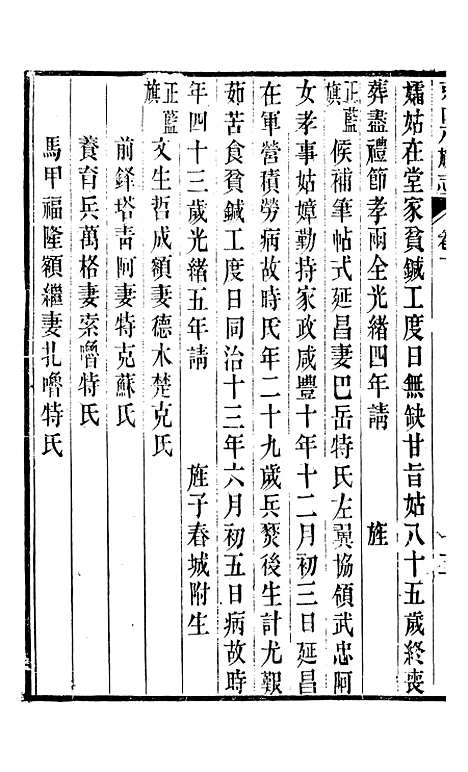 孀姑在堂家貧鍼工度日無缺甘旨姑八十五歲終喪
葬盡禮節孝兩全光緒四年請　旌
正藍旗　候補筆帖式延昌妻巴岳特氏左翼協領武忠阿
女孝事姑嫜勤持家政咸豐十年十二月初三日延昌
在軍營積勞病故時氏年二十九歲兵燹後生計尤艱
茹苦食貧鍼工度日同治十三年六月初五日病故時
年四十三歲光緒五年請　旌子春城附生
正藍旗　文生哲成額妻德木楚克氏
前鋒塔靑阿妻特克蘇氏
養育兵萬格妻索嚕特氏
馬甲福隆額繼妻扎嚕特氏